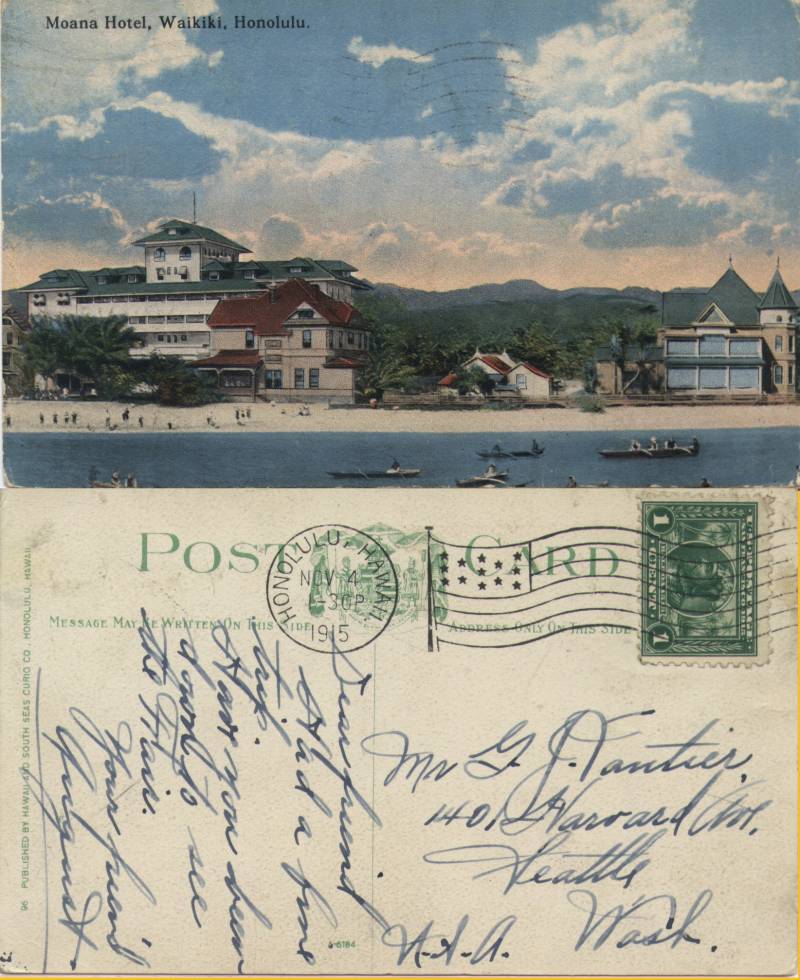 Moana Hotel, Waikiki, Honolulu.
POST CARD
HONOLULU, HAWAII
NOV 4
-30P
1915
MESSAGE MAY BE WRITTEN ON THIS SIDE
ADDRESS ONLY ON THIS SIDE
1 1
96 PUBLISHED BY HAWAII AND SOUTH SEAS CURIO CO., HONOLULU, HAWAII.
Dear friend
Had a fine
trip.
Have you been
down to see
the Fair.
Your friend
August.
Mr G. J. Vantier.
1401 Harvard Ave.
Seattle
Wash.
U.S.A.
A-6184